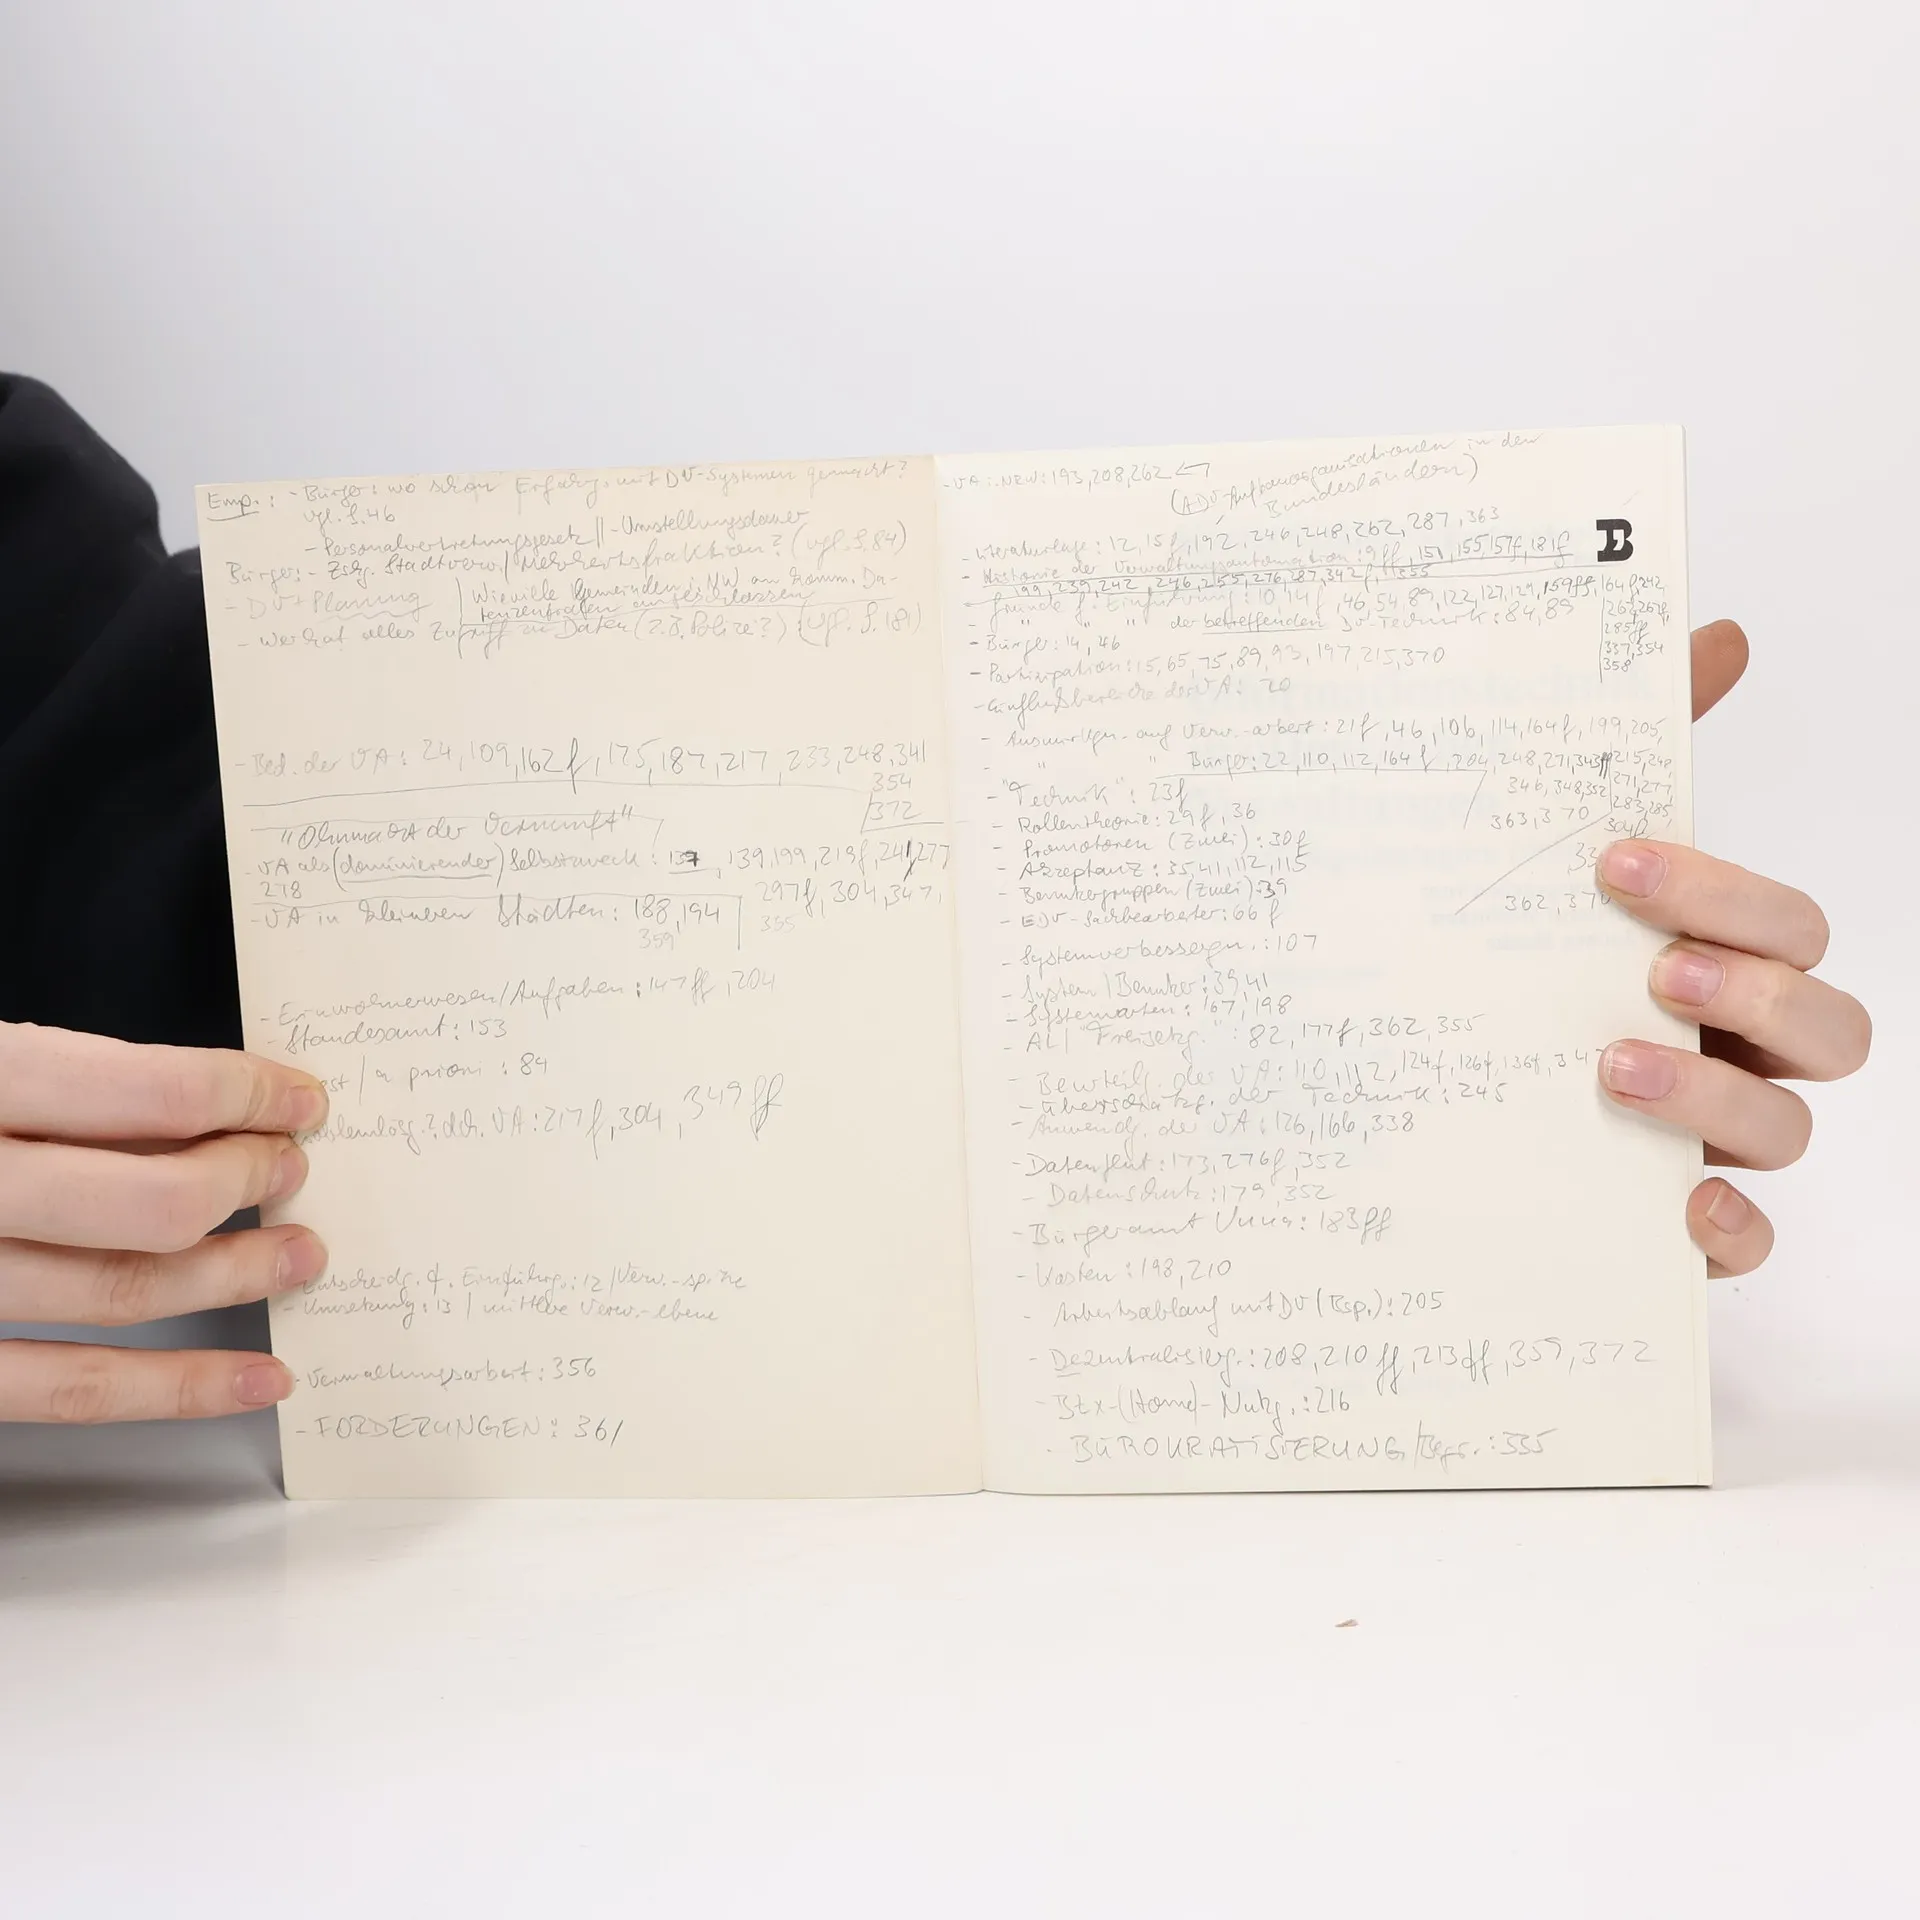 Emp.: - Bürger: wo schon Erfahrg. mit DV-Systemen gemacht?
vgl. S. 46
- Personalvertretungsgesetz || - Umstellungsdauer
Bürger: - Zshg. Stadtverw./Mehrheitsfraktion? (vgl. S. 84)
- DV + Planung | Wieviele Gemeinden i. NW an komm. Da-
tenzentralen angeschlossen
- Wer hat alles Zugriff zu Daten (z.B. Polizei?) (vgl. S. 181)
- Bed. der VA: 24, 109, 162f, 175, 187, 217, 233, 248, 341
354
372
"Ohnmacht der Vernunft"
- VA als (dominierender) Selbstzweck: 137, 139, 199, 219f, 241, 277
278 297f, 304, 347,
- VA in kleineren Städten: 188, 194 355
359
- Einwohnerwesen/Aufgaben: 147ff, 204
- Standesamt: 153
/ a priori: 84
Problemlösg.? dch. VA: 217f, 304, 349ff
Entscheidg. f. Einführg.: 12 / Verw.-spitze
- Umsetzung: 13 / mittlere Verw.-ebene
- Verwaltungsarbeit: 356
- FORDERUNGEN: 361
- VA: NRW: 193, 208, 262
(ADV-Aufbauorganisationen in den
Bundesländern)
B
- Literaturlage: 12, 15f, 192, 246, 248, 262, 287, 363
- Historie der Verwaltungsautomation: 9ff, 151, 155, 157f, 181f
199, 239, 242, 246, 255, 276, 287, 342f, 355
- Gründe f. Einführung: 10, 14f, 46, 54, 89, 122, 127, 129, 159ff, 164f, 242,
262, 267f,
- " " " der betreffenden DV-Technik: 84, 89
285ff
337, 354
358
- Bürger: 14, 46
- Partizipation: 15, 65, 75, 89, 93, 197, 215, 370
- Einflußbereiche der VA: 20
- Auswirkgn. auf Verw.-arbeit: 21f, 46, 106, 114, 164f, 199, 205,
- " " Bürger: 22, 110, 112, 164f, 204, 248, 271, 343ff 215, 248,
346, 348, 352 271, 277,
363, 370 283, 285,
304f
- "Technik": 23f
- Rollentheorie: 29f, 36
- Promotoren (zwei): 30f
- Akzeptanz: 35, 41, 112, 115
- Benutzergruppen (zwei): 39
362, 370
- EDV-Sachbearbeiter: 66f
- Systemverbessergn.: 107
- System/Benutzer: 39, 41
- Systemarten: 167, 198
- AL/"Freisetzg.": 82, 177f, 362, 355
- Beurteilg. der VA: 110, 112, 124f, 126f, 136f, 347
- Überschätzg. der Technik: 245
- Anwendg. der VA: 126, 166, 338
- Datenflut: 173, 276f, 352
- Datenschutz: 179, 352
- Bürgeramt Unna: 183ff
- Kosten: 198, 210
- Arbeitsablauf mit DV (Bsp.): 205
- Dezentralisierg.: 208, 210ff, 213ff, 359, 372
- Btx-(Home)-Nutzg.: 216
- BÜROKRATISIERUNG/Begr.: 335